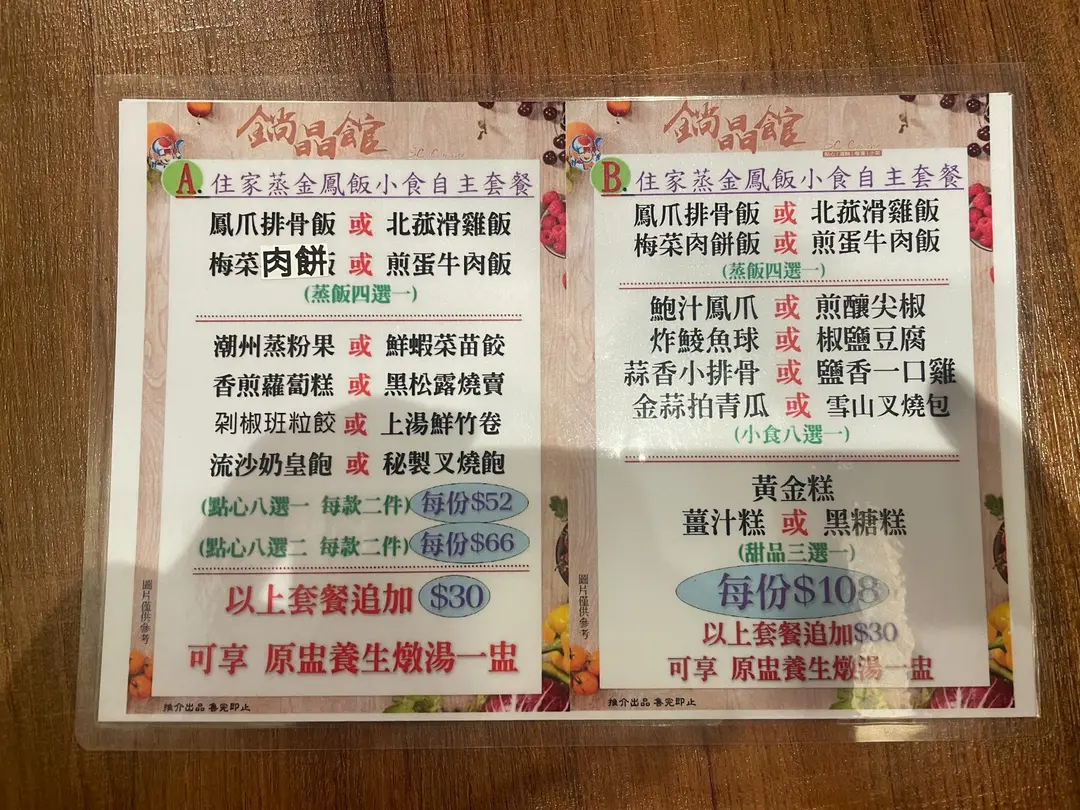 鍋晶館
A. 住家蒸金鳳飯小食自主套餐
鳳爪排骨飯 或 北菰滑雞飯
梅菜肉餅 或 煎蛋牛肉飯
(蒸飯四選一)
潮州蒸粉果 或 鮮蝦菜苗餃
香煎蘿蔔糕 或 黑松露燒賣
剁椒班粒餃 或 上湯鮮竹卷
流沙奶皇飽 或 秘製叉燒飽
(點心八選一 每款二件) 每份$52
(點心八選二 每款二件) 每份$66
以上套餐追加 $30
可享 原盅養生燉湯一盅
圖片僅供參考
推介出品 售完即止
鍋晶館
B. 住家蒸金鳳飯小食自主套餐
鳳爪排骨飯 或 北菰滑雞飯
梅菜肉餅飯 或 煎蛋牛肉飯
(蒸飯四選一)
鮑汁鳳爪 或 煎釀尖椒
炸鯪魚球 或 椒鹽豆腐
蒜香小排骨 或 鹽香一口雞
金蒜拍青瓜 或 雪山叉燒包
(小食八選一)
黃金糕
薑汁糕 或 黑糖糕
(甜品三選一)
每份$108
以上套餐追加$30
可享 原盅養生燉湯一盅
圖片僅供參考
推介出品 售完即止